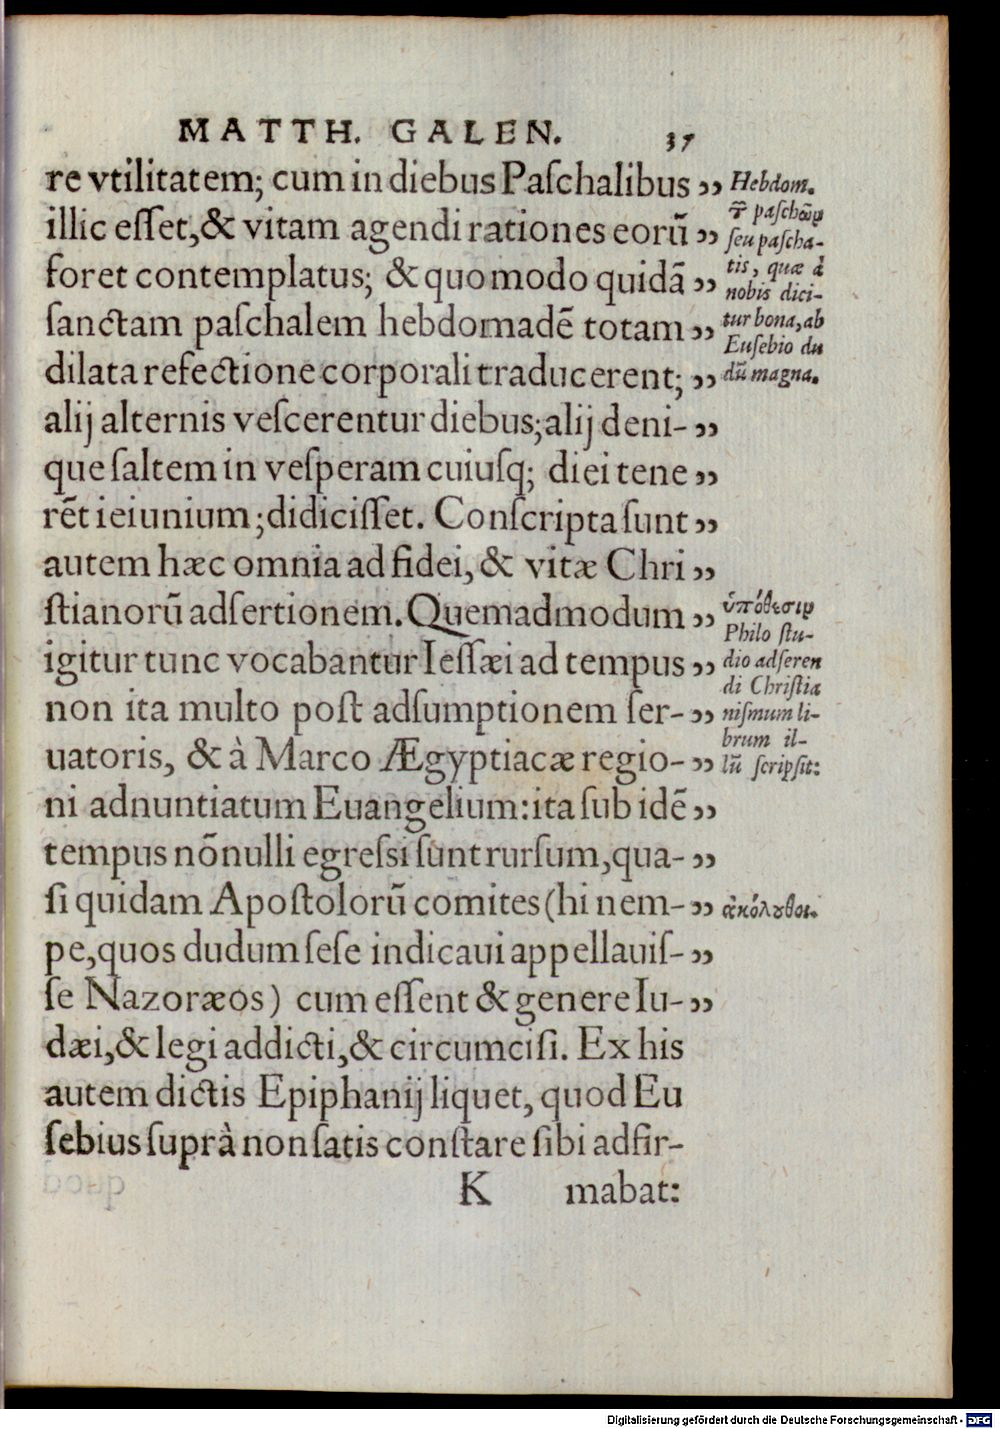 MATTH. GALEN. 37
re vtilitatem; cum in diebus Paſchalibus ”
illic eſſet, & vitam agendi rationes eorũ ”
foret contemplatus; & quomodo quidã ”
ſanctam paſchalem hebdomadẽ totam ”
dilata refectione corporali traducerent; ”
alij alternis veſcerentur diebus; alij deni- ”
que ſaltem in veſperam cuiuſq; diei tene ”
rẽt ieiunium; didiciſſet. Conſcripta ſunt ”
autem hæc omnia ad fidei, & vitæ Chri ”
ſtianorũ adſertionem. Quemadmodum ”
igitur tunc vocabantur Ieſſæi ad tempus ”
non ita multo poſt adſumptionem ſer- ”
uatoris, & à Marco Ægyptiacæ regio- ”
ni adnuntiatum Euangelium: ita ſub idẽ ”
tempus nõnulli egreſsi ſunt rurſum, qua- ”
ſi quidam Apoſtolorũ comites (hi nem- ”
pe, quos dudum ſeſe indicaui appellauiſ- ”
ſe Nazoræos) cum eſſent & genere Iu- ”
dæi, & legi addicti, & circumciſi. Ex his
autem dictis Epiphanij liquet, quod Eu
ſebius ſuprà non ſatis conſtare ſibi adfir-
K mabat:
Hebdom.
paſchῶν
ſeu paſcha-
tis, quæ à
nobis dici-
tur bona, ab
Euſebio du
dũ magna.
ὑπόθεσιν
Philo ſtu-
dio adſeren
di Chriſtia
niſmum li-
brum il-
lũ ſcripſit:
ἀκόλȣθοι.
Digitalisierung gefördert durch die Deutsche Forschungsgemeinschaft - DFG